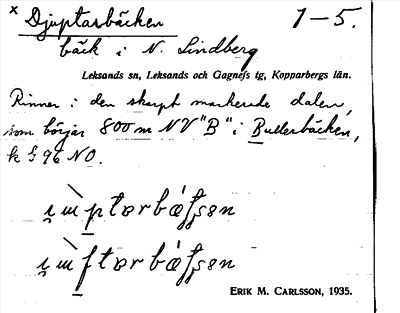 x Djuptarbäcken 1-5.
bäck i N. Lindberg
Leksands sn, Leksands och Gagnefs tg, Kopparbergs län.
Rinner i den skarpt markerade dalen,
som börjar 800 m NV "B" i Bullerbäcken,
k § 96 NO.
ERIK M. CARLSSON, 1935.